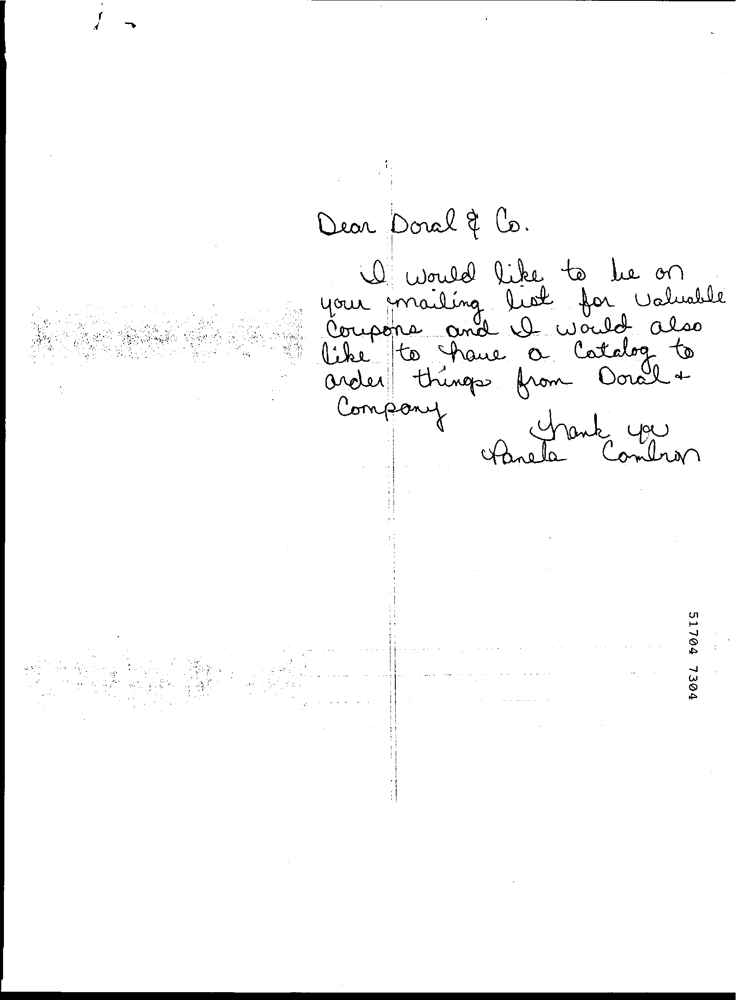 Dear Doral & Co.
I would like to be on
your mailing list for valuable
Coupons and I would also
like to have a Catalog to
order things from Doral +
Company
Thank you
Pamela
51704 7304